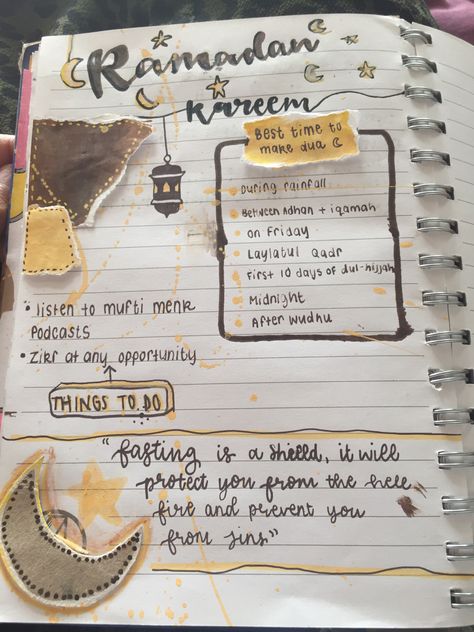 Ramadan
kareem
Best time to
make dua
During rainfall
Between Adhan + iqamah
on Friday
Laylatul Qadr
First 10 days of dul-hijjah
Midnight
After wudhu
• listen to mufti menk
Podcasts
• Zikr at any opportunity
THINGS TO DO
"fasting is a shield, it will
protect you from the hell
fire and prevent you
from sins"